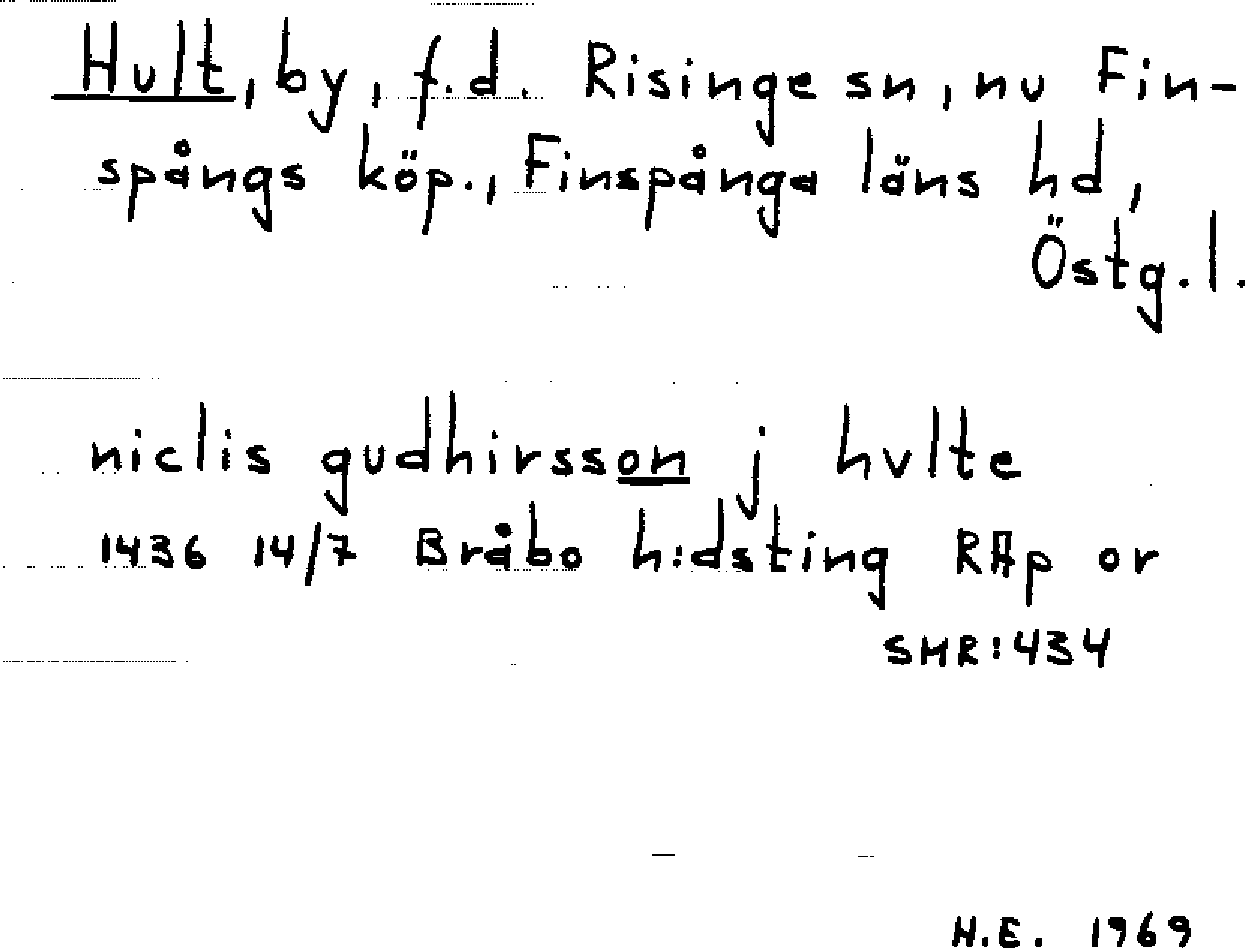 Hult, by, f.d. Risinge sn, nu Fin-
spångs köp., Finspånga läns hd,
Östg.l.
niclis gudhirsson j hvlte
1436 14/7 Bråbo h:dsting RAp or
SMR:434
H.E. 1969